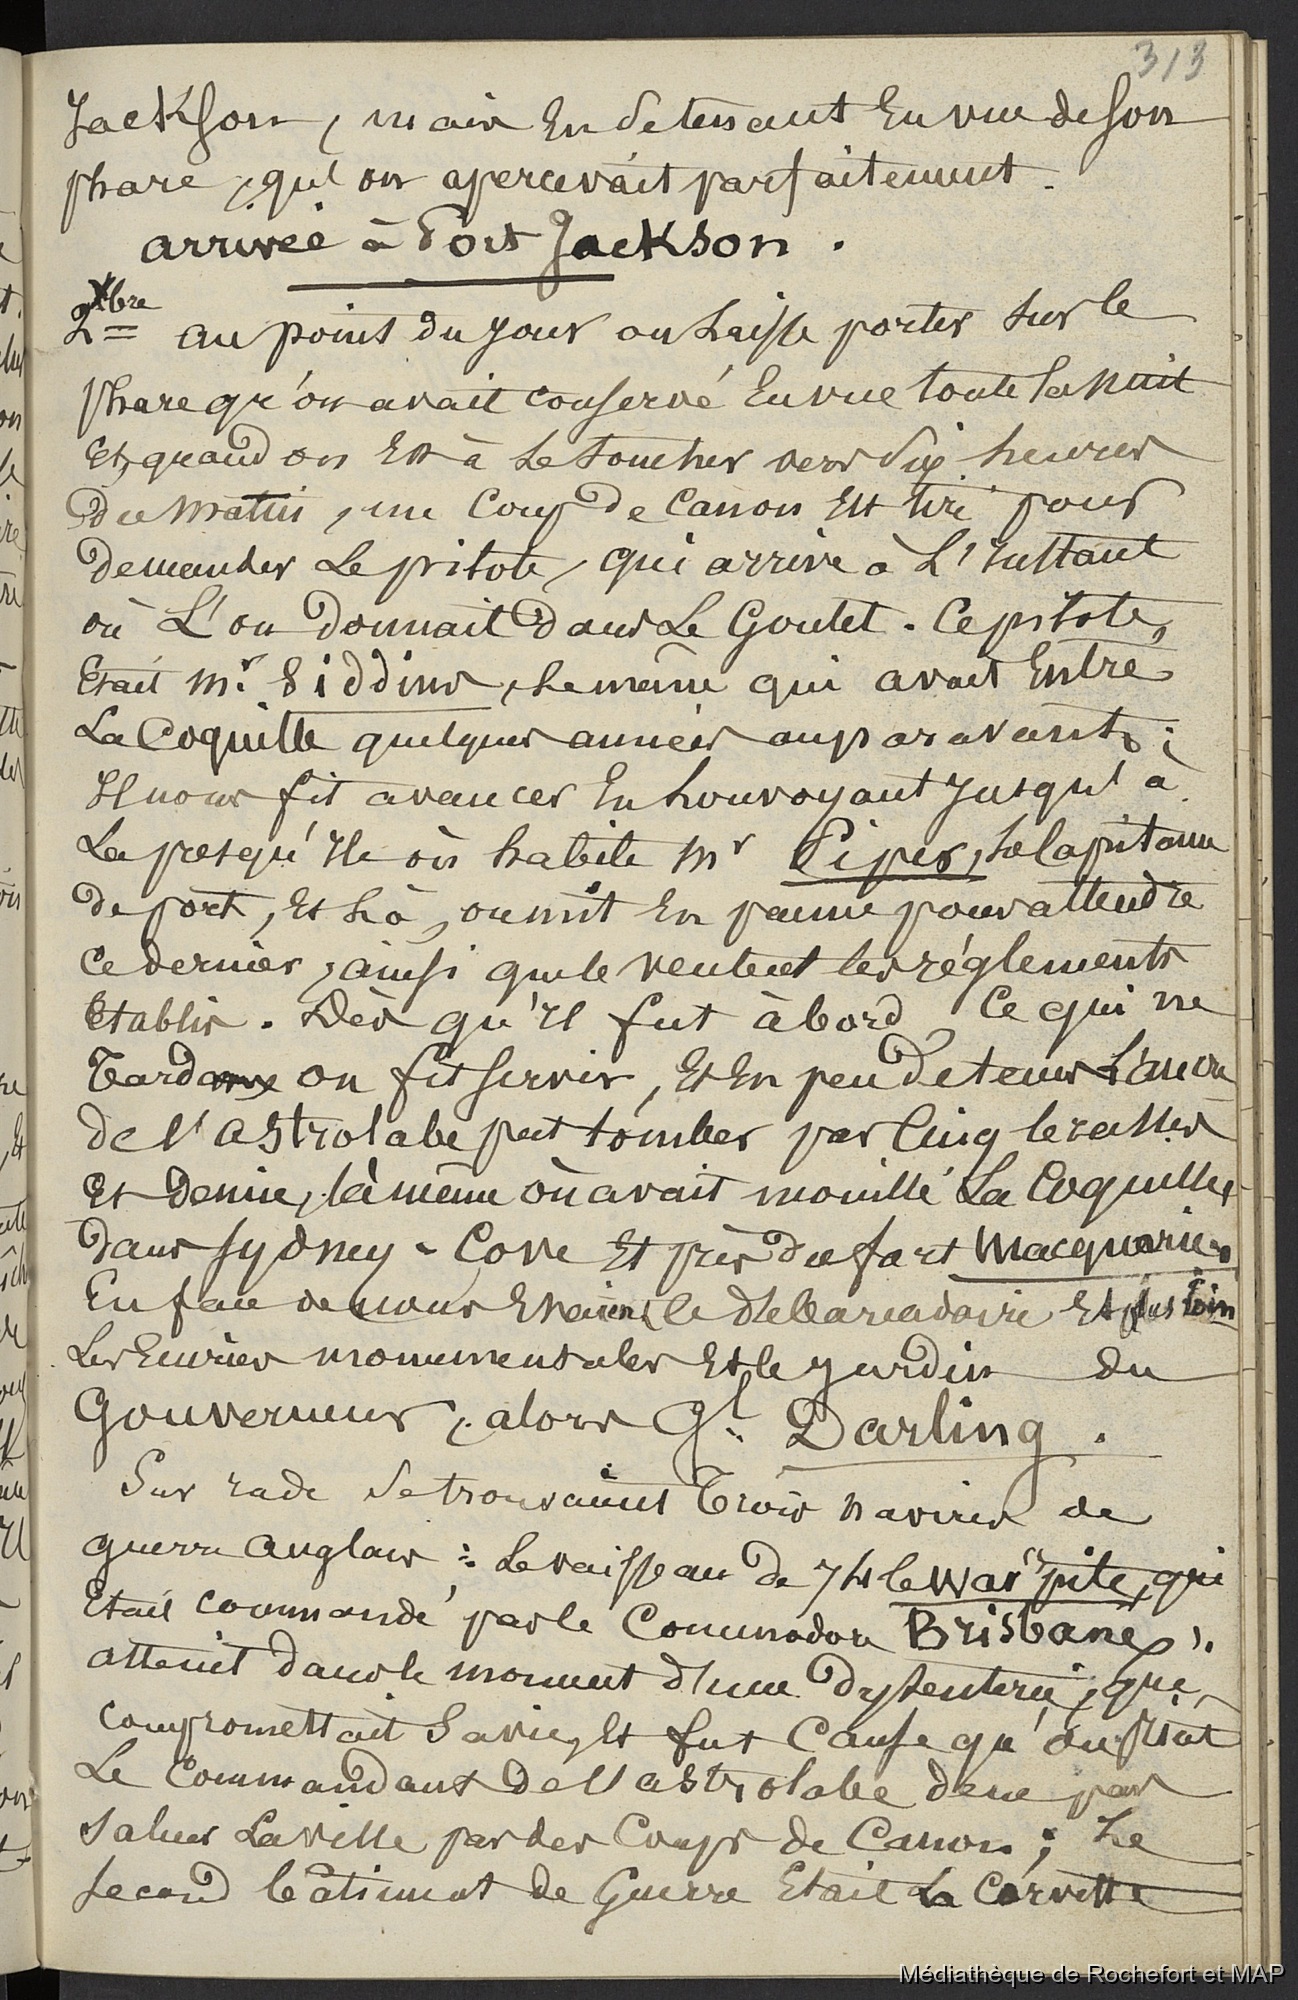 313
Jackson, mais En se tenant En vue de son
phare, qu'on apercevait parfaitement.
arrivée à Port Jackson.
2 Xbre au point du jour on Laisse porter sur le
phare qu'on avait conservé En vue toute la nuit
Et, quand on Est à Le toucher vers dix heures
du matin, un Coup de Canon Est tiré pour
demander Le pilote, qui arrive à L'instant
où L'on donnait dans Le Goulet. Ce pilote,
Etait Mr. Siddins, le même qui avait Entré
La Coquille quelques années auparavant;
Il nous fit avancer En louvoyant jusqu'à
La presqu'Ile où habite Mr Piper, le Capitaine
de port, Et Là, on mit En panne pour attendre
ce dernier, ainsi que le veulent les réglements
Etablis. Dès qu'Il fut à bord, Ce qui ne
Tarda on fit servir, Et En peu de tems L'ancre
de l'astrolabe put tomber par Cinq brasses
Et Demie, là même où avait mouillé La Coquille,
dans Sydney-Cove Et près du fort Macquarie.
En face de nous Etaient le débarcadaire Et plus loin
Les Ecuries monumentales Et le jardin du
Gouverneur, alors Gl. Darling.
Sur rade se trouvaient Trois navires de
guerre anglais: Le vaisseau de 74 le Warspite, qui
Etait commandé par le Commodore Brisbane,
atteint dans le moment d'une dysenterie, qui
compromettait sa vie, Et fut Cause qu'on priat
Le Commandant de l'astrolabe de ne pas
saluer La ville par des Coups de Canon; Le
second bâtiment de Guerre Etait La Corvette
Médiathèque de Rochefort et MAP